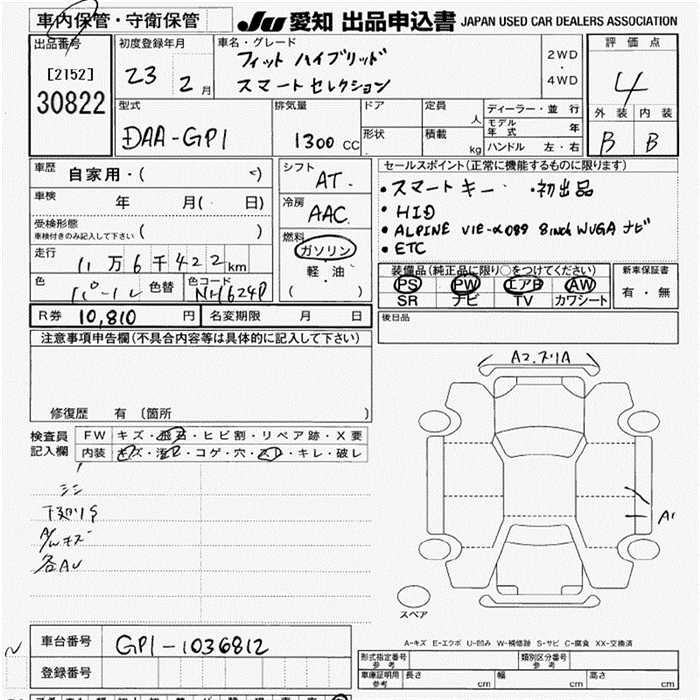 車内保管・守衛保管
JU 愛知 出品申込書 JAPAN USED CAR DEALERS ASSOCIATION
出品番号
[2152]
30822
初度登録年月
23 2月
車名・グレード
フィット ハイブリッド
スマートセレクション
2WD
・
4WD
評価点
4
外装 内装
B B
型式
DAA-GP1
排気量
1300 CC
ドア
形状
定員 人
積載 kg
ディーラー・並行
モデル年式 年
ハンドル 左・右
車歴 自家用・( )
車検 年 月( 日)
受検形態
車検付きのみ記入して下さい ( )
走行 11万6千422km
色 パール 色替 色コード NH624P
R券 10,810 円 名変期限 月 日
シフト
AT.
冷房
AAC
燃料
ガソリン
軽油
( )
セールスポイント(正常に機能するものに限ります)
・スマートキー ・初出品
・HID
・ALPINE VIE-X089 8inch WVGA ナビ
・ETC
装備品(純正品に限り○をつけてください)
PS PW エアB AW
SR ナビ TV カワシート
新車保証書
有・無
後日品
注意事項申告欄(不具合内容等は具体的に記入して下さい)
修復歴 有 (箇所 )
検査員記入欄
FW キズ・飛石・ヒビ割・リペア跡・X要
内装 キズ・汚れ・コゲ・穴・スレ・キレ・破レ
シミ
下廻りS
A/Wキズ
各AU
A2.スリA
A1
スペア
A-キズ E-エクボ U-凹み W-補修跡 S-サビ C-腐食 XX-交換済
車台番号 GP1-1036812
登録番号
形式指定番号
参考
類別区分番号
参考
車庫証明用
参考
長さ cm 幅 cm 高さ cm